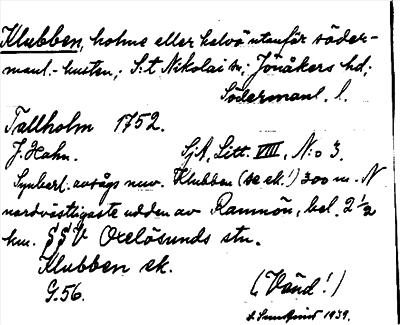 Klubben, holme eller halvö utanför söder-
manl.-kusten,. S:t Nikolai sn; Jönåkers hd;
Södermanl. l.
Tallholm 1752.
J. Hahn. SjA, Litt. VIII, N:o 3.
Synbarl. avsågs nuv. Klubben (se ek.!) 300 m. N
nordvästligaste udden av Ramnön, bel. 2 1/2
km. SSV Oxelösunds stn.
Klubben ek.
G.56. (Vänd!)
1939.